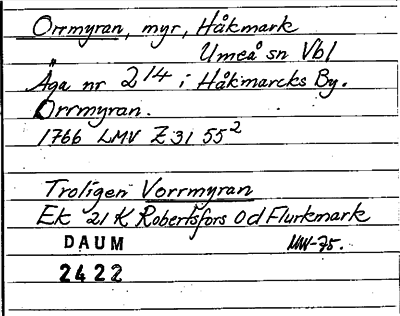 Orrmyran, myr, Håkmark
Umeå sn Vbl
Äga nr 214 i Håkmarcks By.
Orrmyran.
1766 LMV Z 31 55²
Troligen Vorrmyran
Ek 21 K Robertsfors Od Flurkmark
DAUM MW-75.
2422